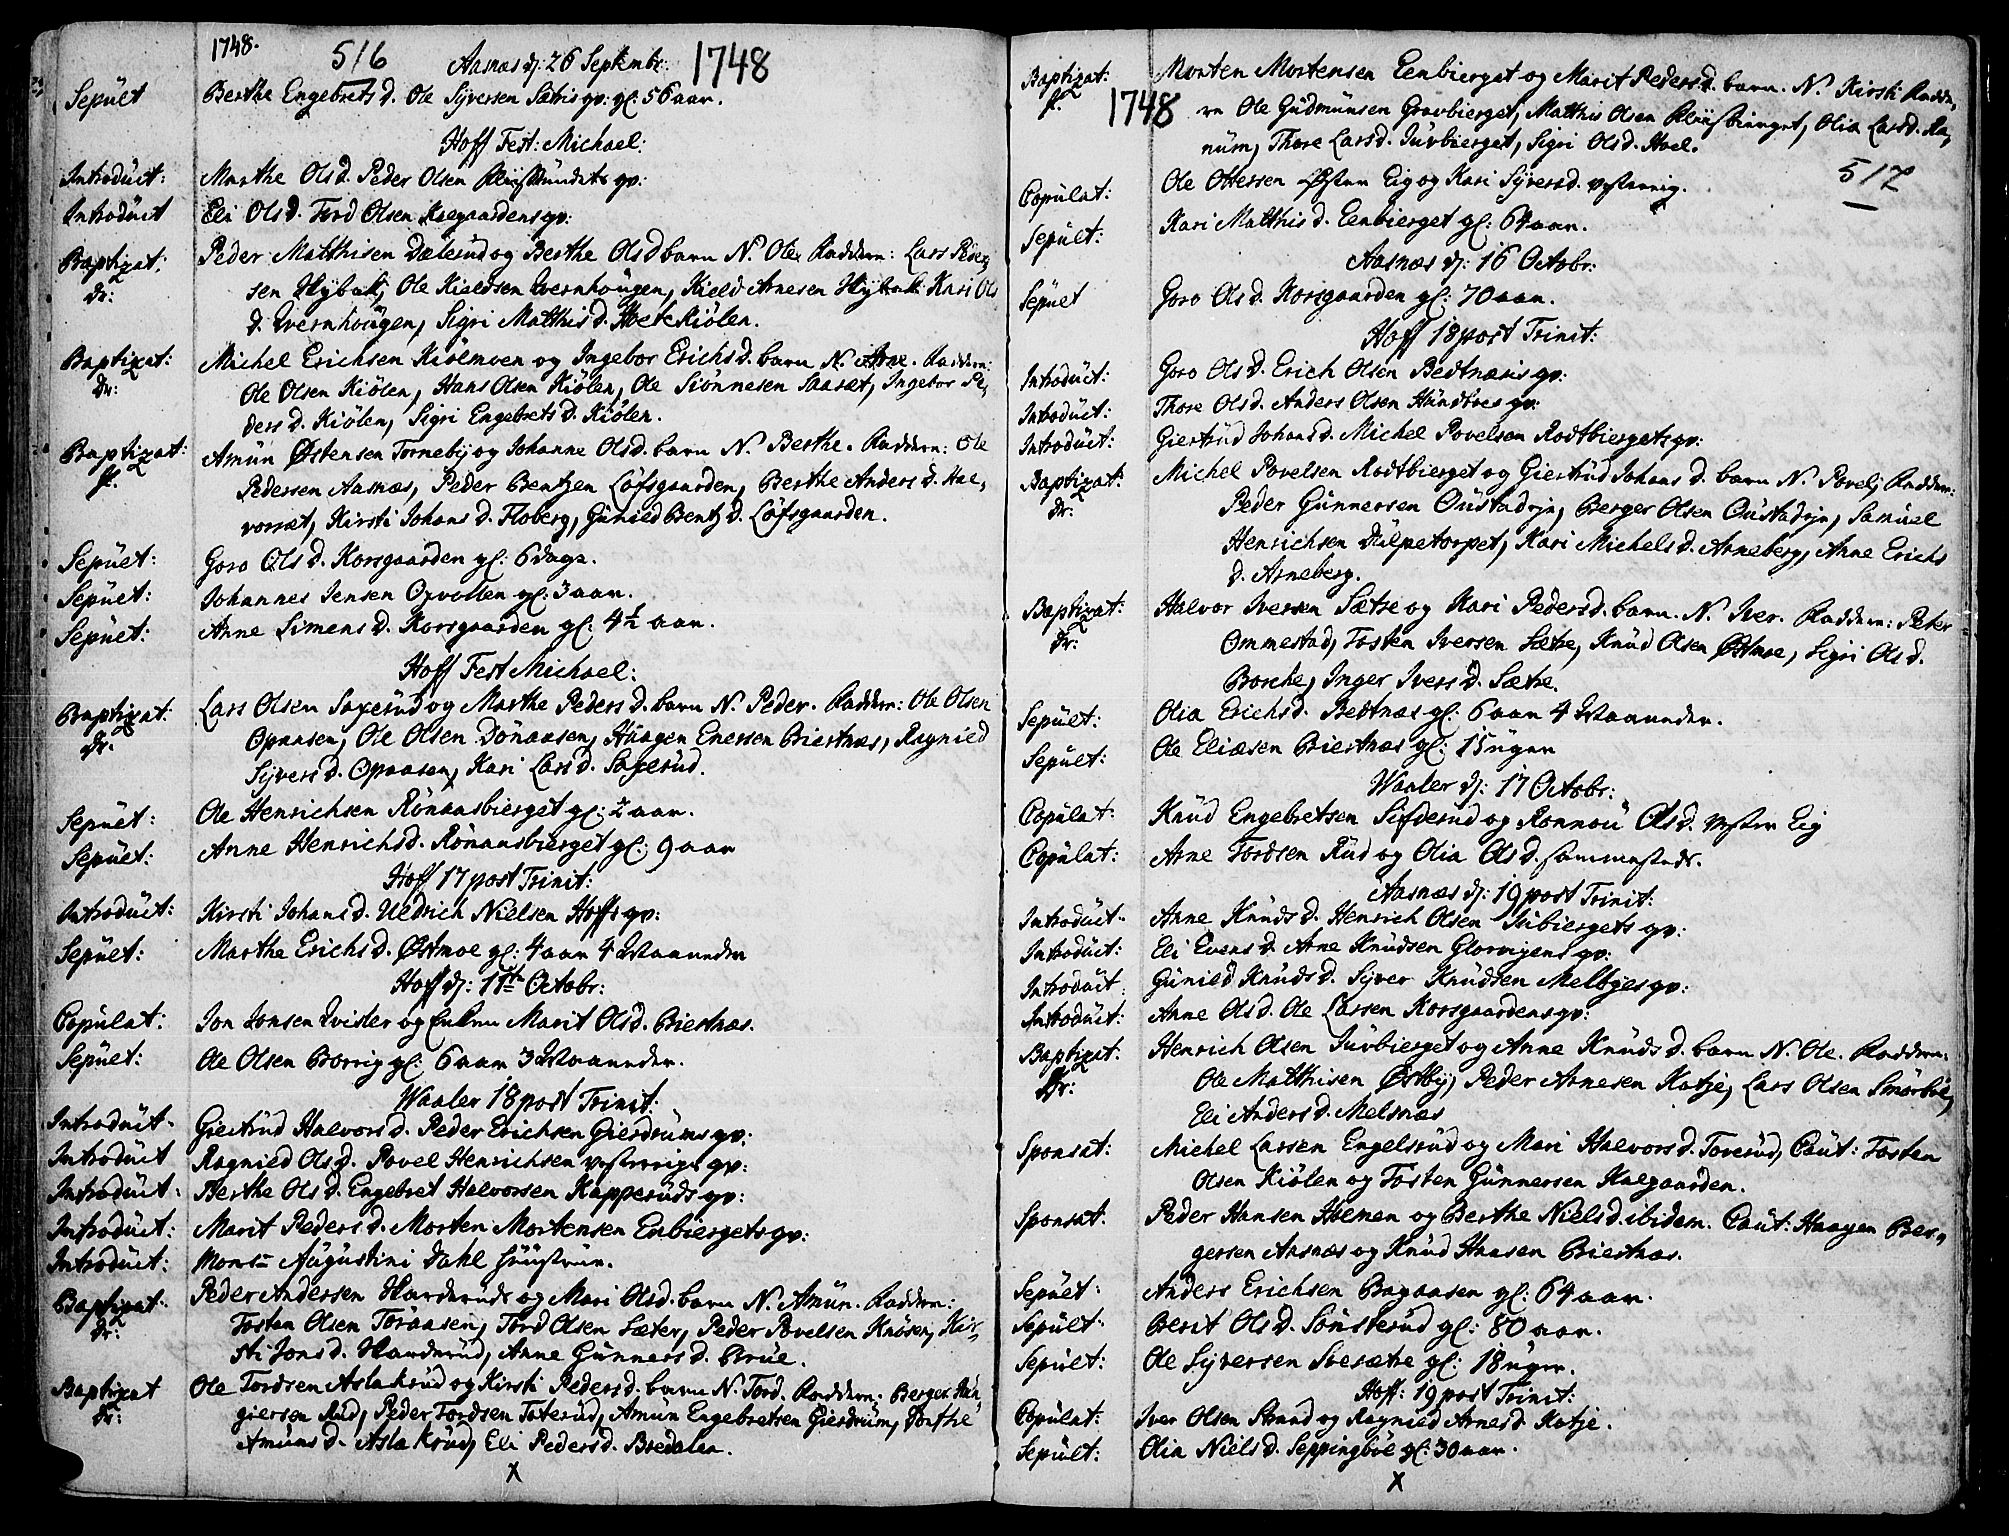 1748.
516
Aasnæs d: 26 Septembr: 1748
Sepult Berthe Engebrets d. Ole Syversen Sætris qv: gl: 56 aar.
Hoff Fest: Michael:
Introduct: Marthe Olsd. Peder Olsen qv:
Introduct Eli Olsd. Tord Olsen Kalgaardens qv:
Baptizat: Peder Matthisen Dælerud og Berthe Olsd barn N. Ole, Faddere: Lars Peder,
dr: sen Nybak, Ole Kieldsen Qvernhougen, Kield Arnesen Nybak Kari Ols
d. Qvernhougen, Sigri Matthis d. Kiølen.
Baptizat: Michel Erichsen Kiølmoen og Ingebor Erichsd. barn N. Arne. Faddere:
dr: Ole Olsen Kiølen, Hans Olsen Kiølen, Ole Siønnesen Aaset, Ingebor Pe,
ders d. Kiølen, Sigri Engebrets d. Kiølen.
Baptizat: Amun Østensen Tornebÿ og Johanne Olsd. barn N. Berthe. Faddere: Ole
p. Pedersen Aasnæs, Peder Bentzen Løfsgaarden, Berthe Anders d. Hal,
vorsæt, Kirsti Johans d. Floberg, Gunild Bentz d. Løfsgaarden.
Sepult: Goro Ols d. Korsgaarden gl: 6 dage.
Sepult: Johannes Jensen Opvollen gl: 3 aar.
Sepult: Anne Simens d. Korsgaarden gl: 4½ aar.
Hoff Fest Michael:
Baptizat: Lars Olsen Saxerud og Marthe Peders d. barn N. Peder. Faddere: Ole Olsen
dr. Opaasen, Ole Olsen Dønaasen, Haagen Enersen Biertnæs, Ragnild
Syvers d. Opaasen, Kari Lars d. Saxerud.
Sepult: Ole Henrichsen Rønaasbierget gl: ½ aar.
Sepult: Anne Henrichsd. Rønaasbierget gl: 9 aar
Hoff 17 post Trinit:
Introduct: Kirsti Johans d. Uldrich Nielsen Hoffs qv:
Sepult: Marthe Erichs d. Østmoe gl: 4 aar 4 Maaneder
Hoff d: 11te Octobr:
Copulat: Jon Jonsen Qvisler og Enken Marit Olsd. Biertnæs.
Sepult: Ole Olsen Borrig gl: 6 aar 3 Maaneder.
Waaler 18 post Trinit:
Introduct. Giertrud Halvors d. Peder Erichsen Gierdrums qv:
Introduct Ragnild Olsd. Povel Henrichsen qv:
Introduct: Berthe Olsd. Engebret Halvorsen Kapperuds qv:
Introduct: Marit Peders d. Morten Mortensen Enbiergets qv:
Introduct: Augustini Dahl Hustrue.
Baptizat: Peder Andersen Harderud og Mari Olsd. barn N. Amun. Faddere:
dr: Tosten Olsen Toraasen, Tord Olsen Sæter, Peder Povelsen Knøsen, Kir,
sti Jons d. Harderud, Anne Gunners d. Brue.
Baptizat Ole Tordsen Aslakrud og Kirsti Peders d. barn N. Tord. Faddere: Berger
dr: giersen Rud, Peder Tordsen Toterud, Amun Engebretsen Gierdrum,
Amuns d. Aslakrud, Eli Peders d. Bredalen.
x
Baptizat: Morten Mortensen Eenbierget og Marit Peders d. barn. N. Kirsti Fadde,
p. 1748 re Ole Gudmunsen Gravbierget, Matthis Olsen, Olia Lars d. Ra,
num, Thore Lars d. Furbierget, Sigri Ols d. Hoel.
517
Copulat: Ole Ottersen Østen Eig og Kari Syversd.
Sepult: Kari Matthis d. Eenbierget gl: 64 aar.
Aasnæs d: 16 Octobr:
Sepult Goro Ols d. Korsgaarden gl: 70 aar.
Hoff 18 post Trinit:
Introduct: Goro Ols d. Erich Olsen Bedtnæris qv:
Introduct: Thore Ols d. Anders Olsen qv:
Introduct: Giertrud Johans d. Michel Povelsen Rodtbiergets qv:
Baptizat: Michel Povelsen Rodtbierget og Giertrud Johans d. barn N. Povel, Faddere:
dr: Peder Gunnersen, Berger Olsen, Samuel
Henrichsen Hulpetorpet, Kari Michels d. Arneberg, Anne Erichs
d. Arneberg.
Baptizat: Halvor Iversen Sætre og Kari Peders d. barn. N. Iver. Faddere: Peter
dr: Ommestad, Tosten Iversen Sætre, Knud Olsen Østmoe, Sigri Ols d.
Borche, Inger Ivers d. Sætre.
Sepult: Olia Erichs d. Bedtnæs gl: 6 aar 4 Maaneder.
Sepult: Ole Eliæsen Biertnæs gl: 15 uger
Waaler d: 17 Octobr:
Copulat: Knud Engebretsen og Ronnou Olsd. Eig
Copulat: Arne Tordsen Rud og Olia Ols d. sammesteds.
Aasnæs d: 19 post Trinit:
Introduct. Anne Knuds d. Henrich Olsen Jubiergets qv:
Introduct: Eli Evens d. Arne Knudsen Glorvigens qv:
Introduct. Gunild Knuds d. Syver Knudsen Melbyes qv:
Introduct: Anne Ols d. Ole Larsen Korsgaardens qv:
Baptizat: Henrich Olsen Juvbierget og Anne Knuds d. barn N. Ole. Faddere.
dr: Ole Matthisen Østbÿ, Peder Arnesen Katje, Lars Olsen Smørbøl,
Eli Anders d. Melsnæs
Sponsat: Michel Larsen Engelsrud og Mari Halvors d. Torerud, Caut: Tosten
Olsen Kiølen og Tosten Gunnersen Kalgaarden.
Sponsat. Peder Hansen Holmen og Berthe Niels d. ibidem. Caut: Haagen Ber,
gersen Aasnæs og Knud Hansen Biertnæs.
Sepult. Anders Erichsen Bagaasen gl: 64 aar.
Sepult. Berit Ols d. Sønsterud gl: 80 aar.
Sepult: Ole Syversen Svesætre gl: 18 uger.
Hoff: 19 post Trinit:
Copulat: Iver Olsen Strand og Ragnild Arnesd. Katje.
Sepult: Olia Niels d. Seppingbøl gl: 30 aar.
x